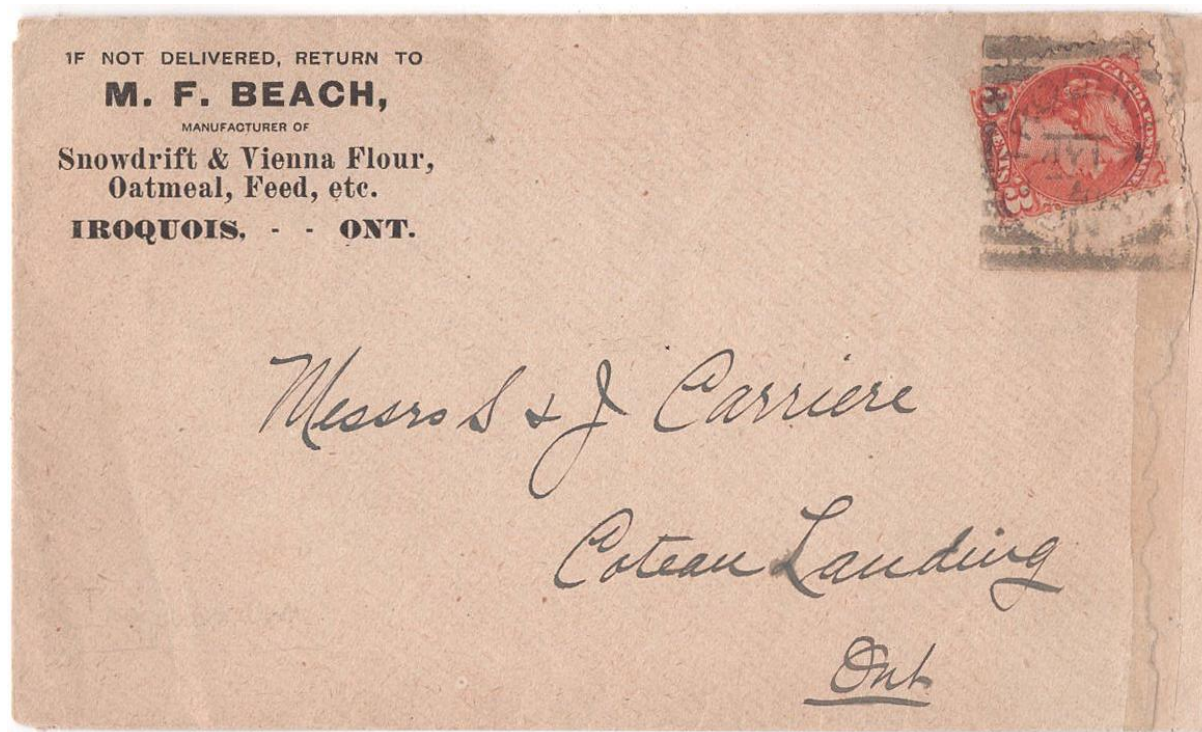 IF NOT DELIVERED, RETURN TO
M. F. BEACH,
MANUFACTURER OF
Snowdrift & Vienna Flour,
Oatmeal, Feed, etc.
IROQUOIS, - - ONT.
CANADA POSTAGE
3 CENTS 3
Messrs S & J Carriere
Coteau Landing
Ont